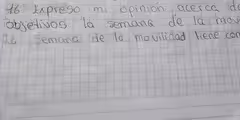 16 Expreso mi opinión acerca de
objetivos la semana de la mov
La semana de la movilidad tiene com